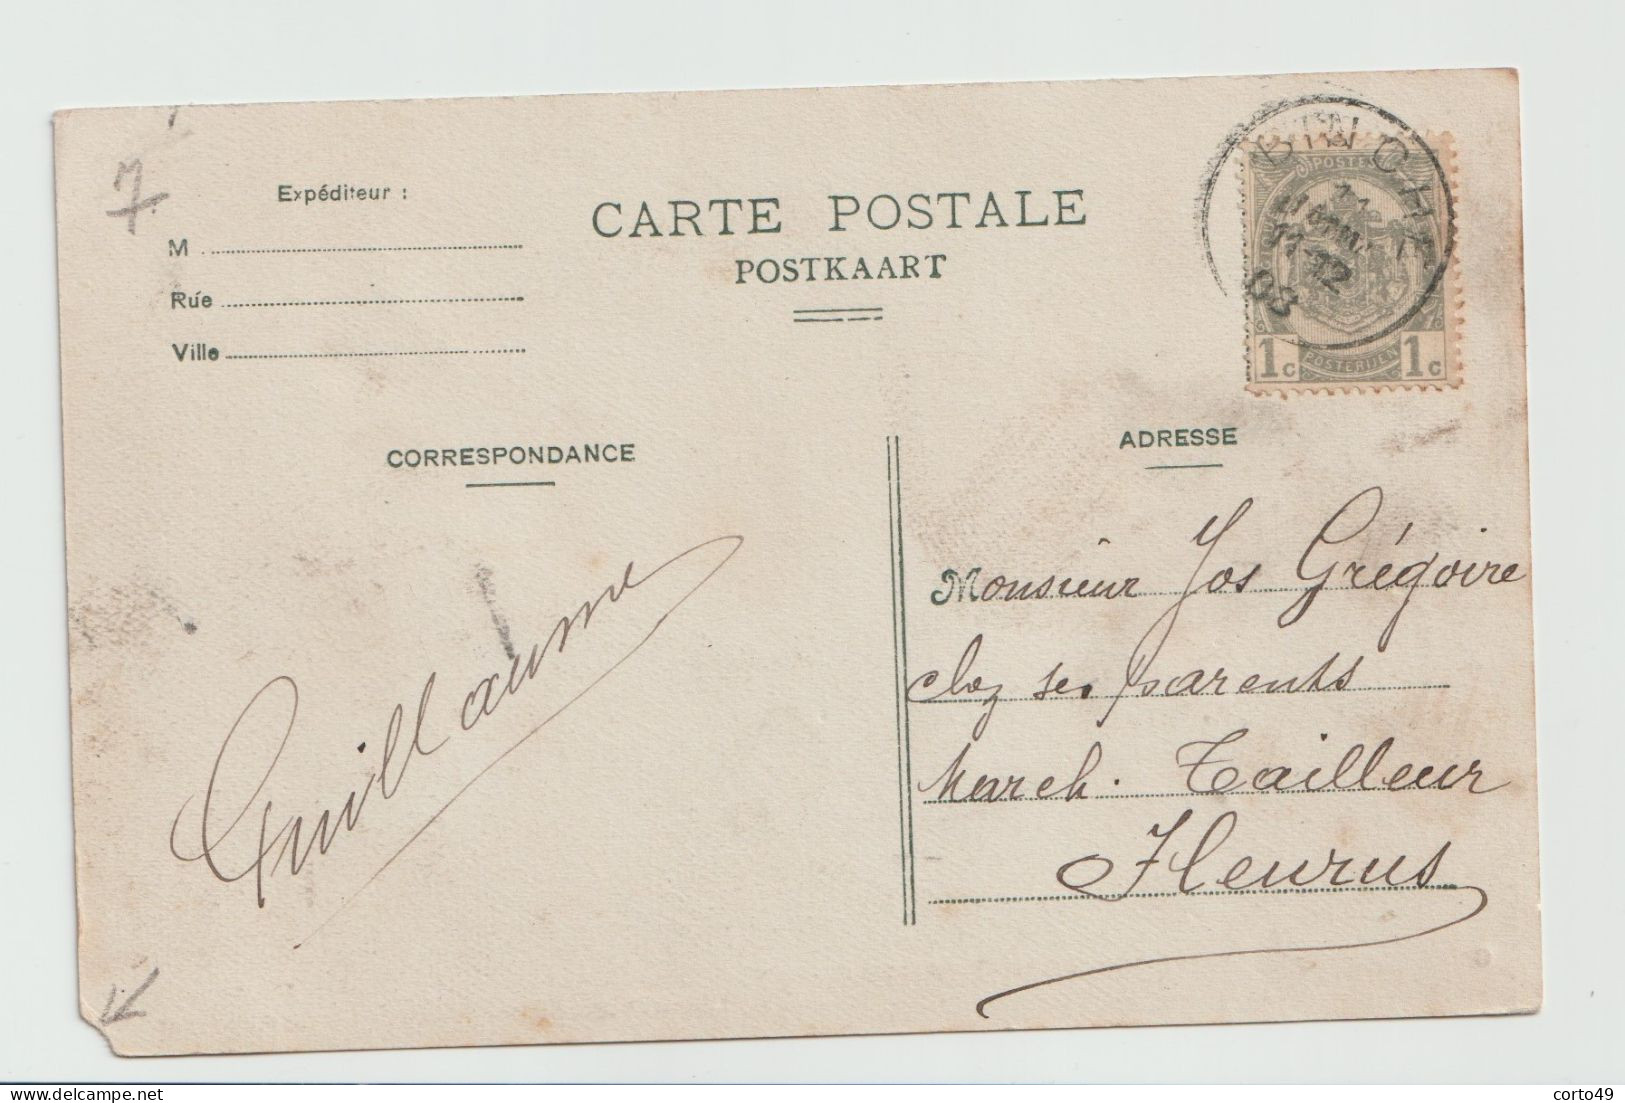 7
Expéditeur :
M
Rue
Ville
CARTE POSTALE
POSTKAART
BINCHE
11-12
08
POSTES
1c POSTERIJEN 1c
CORRESPONDANCE
ADRESSE
Guillaume
Monsieur Jos Grégoire
chez ses parents
March. Tailleur
Fleurus
delcampe.net
corto49